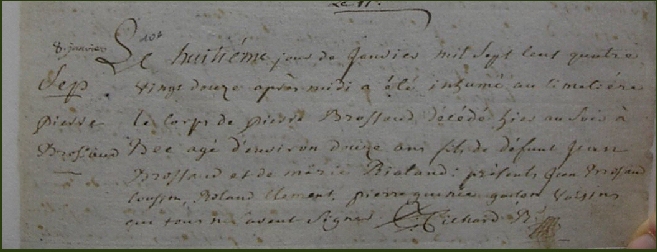 8. janvier Le huitiéme jour de Janvier mil Sept Cent quatre
Sep. vingt douze après midi a été inhumé au Cimetiére
pierre le Corps de pierre Brossaud décédé hier au Soir à
Brossaud agé d'environ douze ans fils de défunt Jean
Brossaud et de marie : présents Jean Brossaud
Cousin, Roland Clement, pierre Voisins
qui tous ne Savent Signer